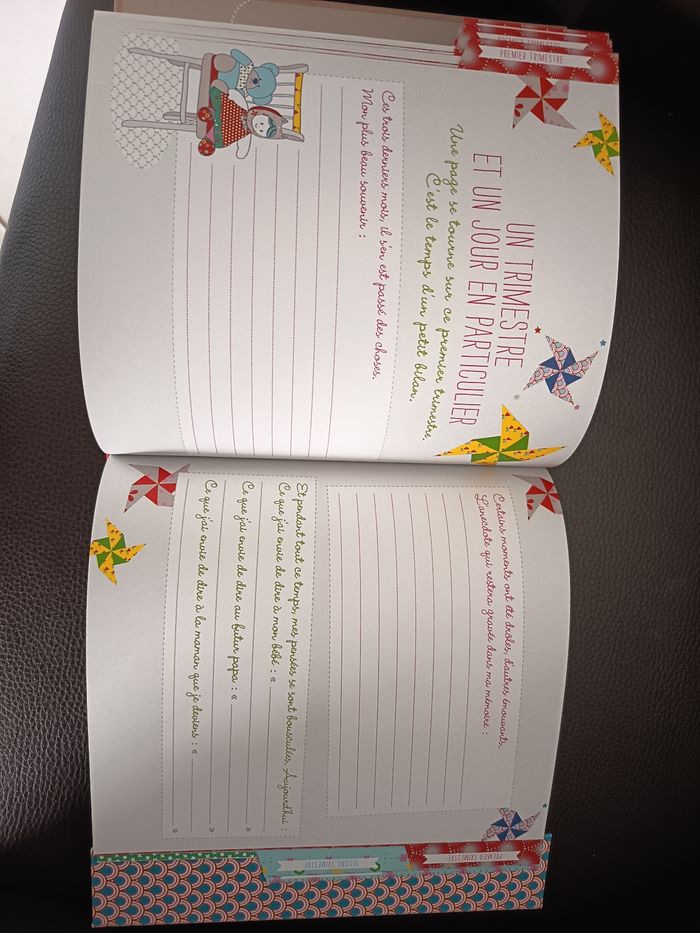 PREMIER TRIMESTRE
UN TRIMESTRE
ET UN JOUR EN PARTICULIER
Une page se tourne sur ce premier trimestre,
C'est le temps d'un petit bilan.
Ces trois derniers mois, il s'en est passé des choses.
Mon plus beau souvenir :
Certains moments ont été drôles, d'autres émouvants.
L'anecdote qui restera gravée dans ma mémoire :
Et pendant tout ce temps, mes pensées se sont bousculées. Aujourd'hui :
Ce que j'ai envie de dire à mon bébé : «
»
Ce que j'ai envie de dire au futur papa : «
»
Ce que j'ai envie de dire à la maman que je deviens : «
»
PREMIER TRIMESTRE
SECOND TRIMESTRE